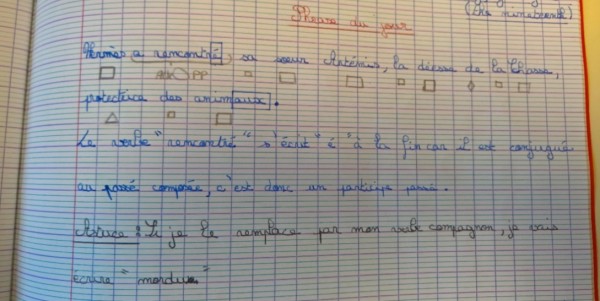 Phrase du jour
Hermès a rencontré sa sœur Artémis, la déesse de la Chasse,
AUX PP
protectrice des animaux.
Le verbe "rencontré" s'écrit "é" à la fin car il est conjugué
au passé composé, c'est donc un participe passé.
Astuce : Si je le remplace par mon verbe compagnon, je vais
écrire "mordue"